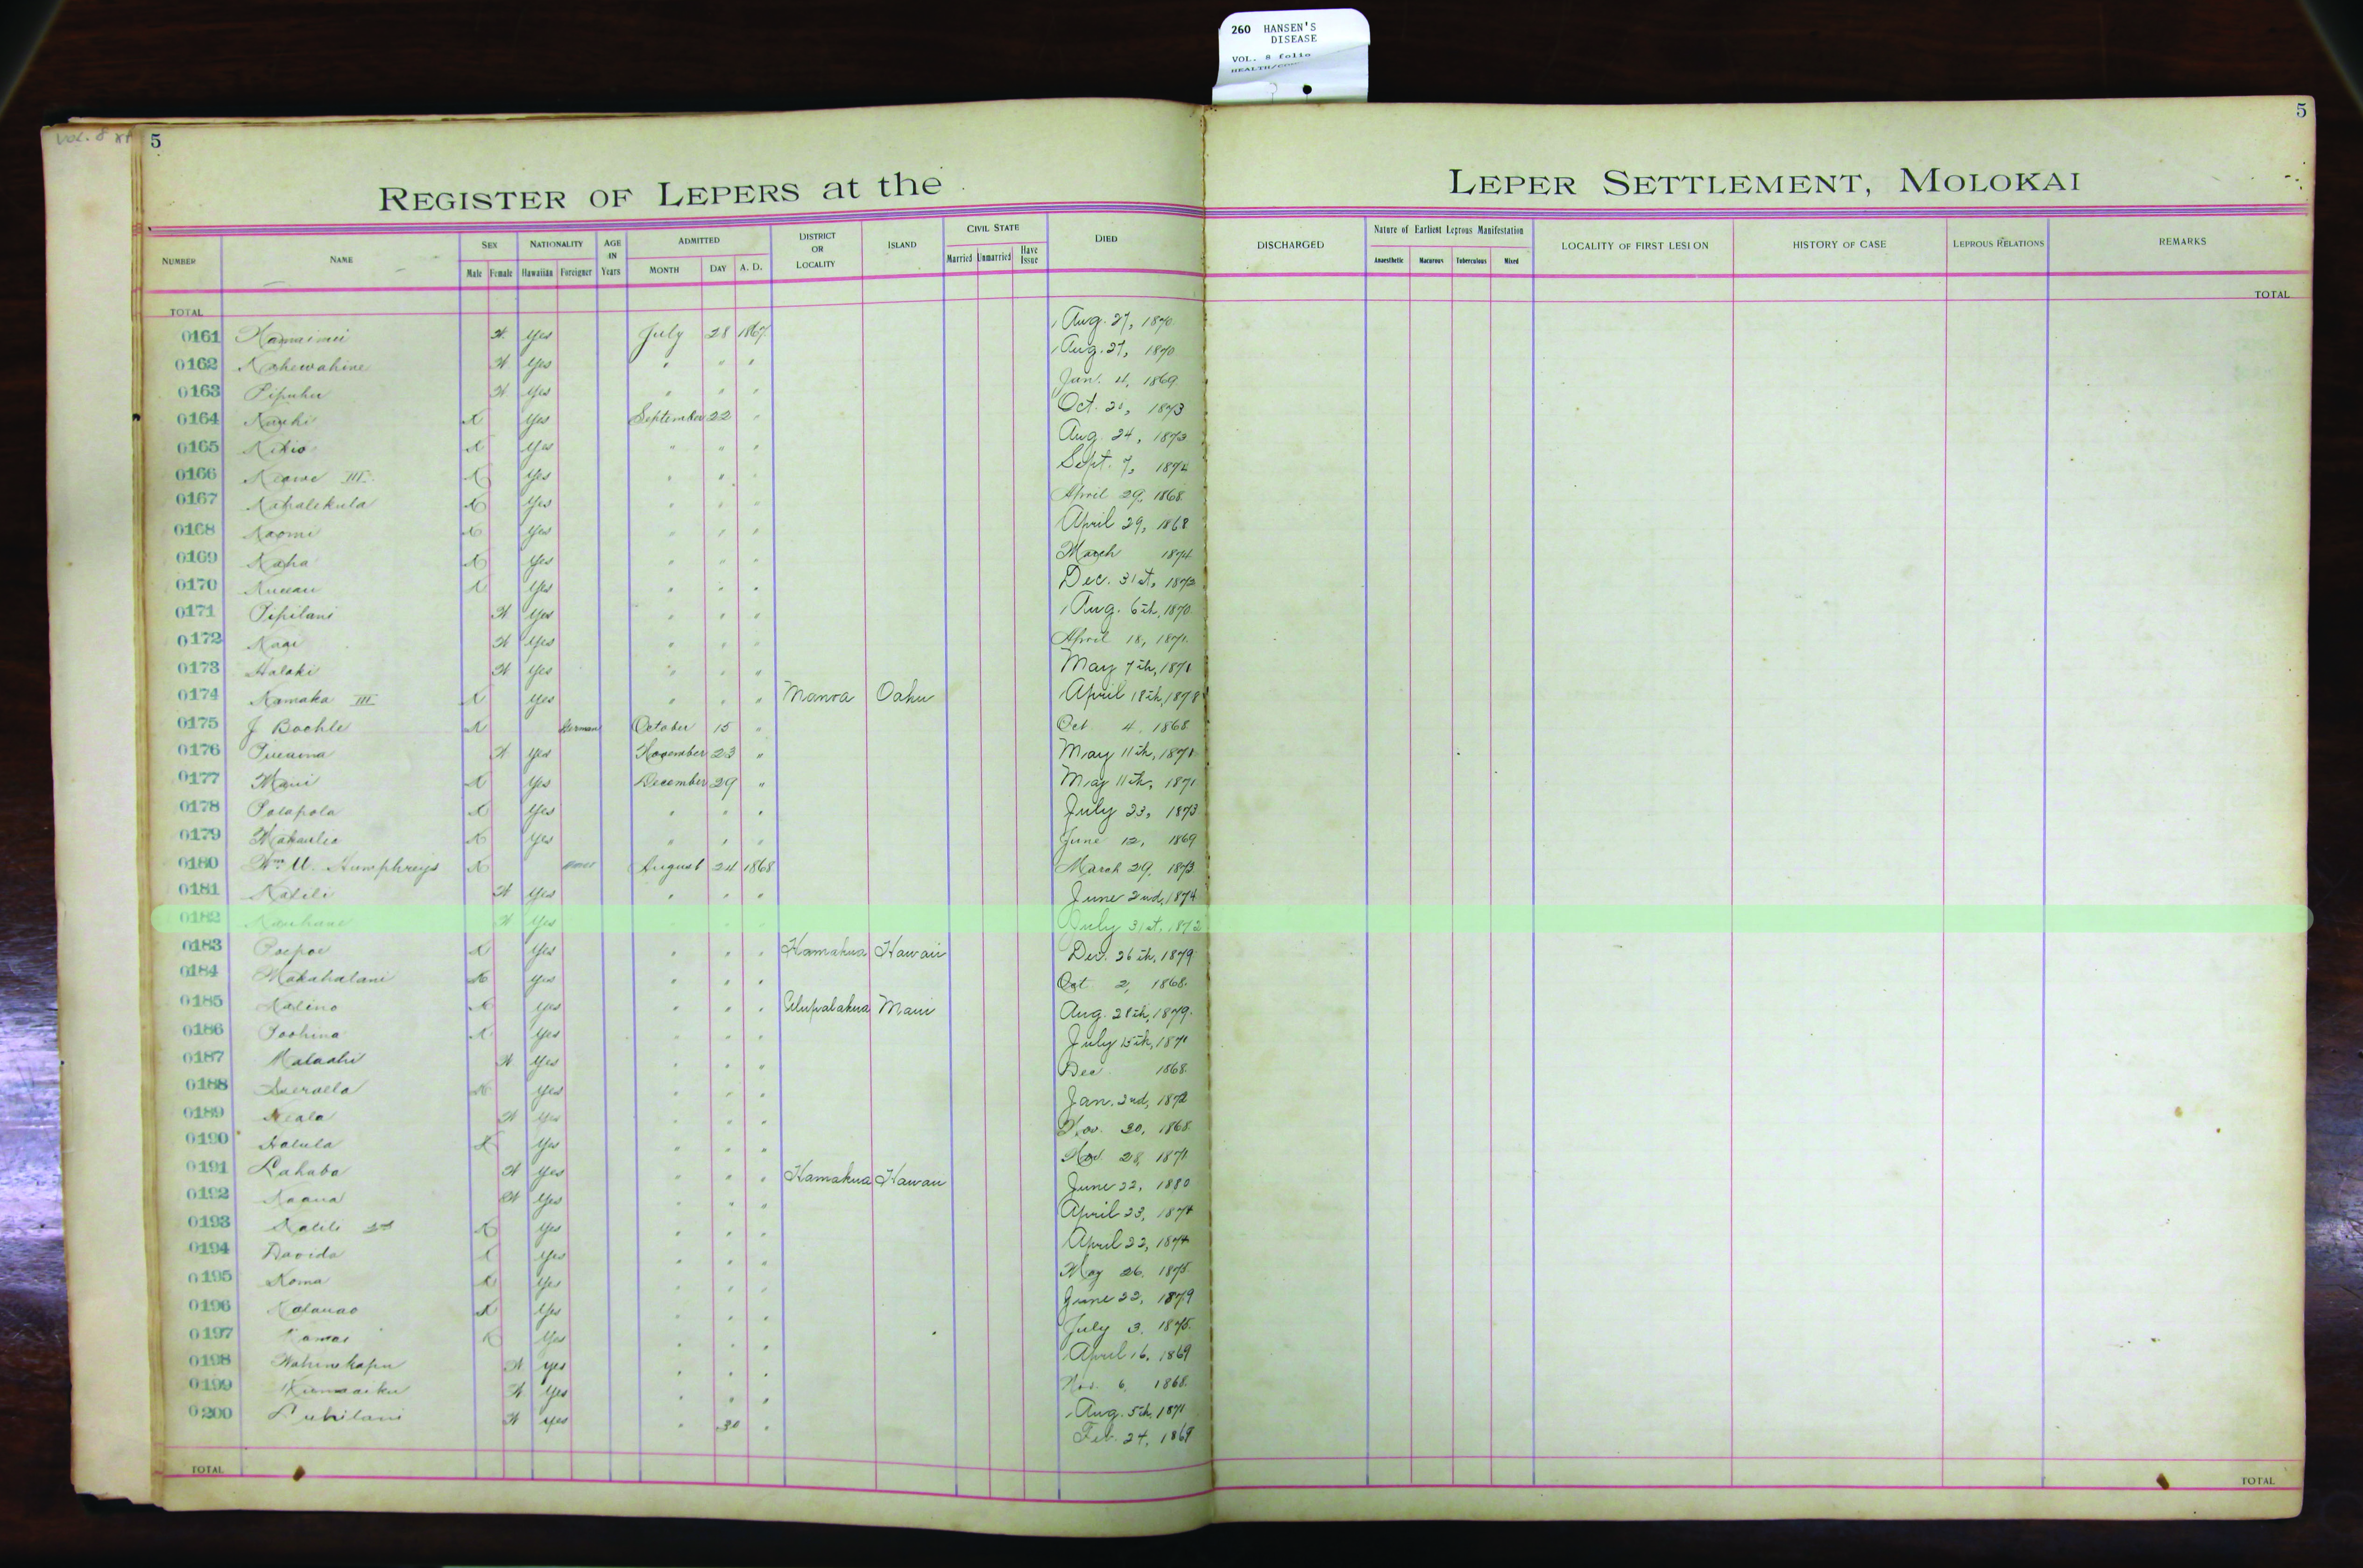 260 HANSEN'S
DISEASE
VOL. 8 folio
VOL. 8
5
5
REGISTER OF LEPERS at the LEPER SETTLEMENT, MOLOKAI
NUMBER NAME SEX Male Female NATIONALITY Hawaiian Foreigner AGE IN Years ADMITTED MONTH DAY A. D. DISTRICT OR LOCALITY ISLAND CIVIL STATE Married Unmarried Have Issue DIED DISCHARGED Nature of Earliest Leprous Manifestation Anaesthetic Macurous Tuberculous Mixed LOCALITY OF FIRST LESION HISTORY OF CASE LEPROUS RELATIONS REMARKS
TOTAL TOTAL
0161 Yes July 28 1867 Aug. 27, 1870
0162 Kahewahine Yes " " " Aug. 27, 1870
0163 Pipuhu Yes " " " Jan. 4, 1869
0164 Yes September 22 " Oct. 1873
0165 Kikio Yes " " " Aug. 24, 1873
0166 Keawe III Yes " " " Sept. 7, 1874
0167 Kahalekula Yes " " " April 29, 1868
0168 Naomi Yes " " " April 29, 1868
0169 Kaha Yes " " " March 1874
0170 Yes " " " Dec. 31st, 1873
0171 Pipilani Yes " " " Aug. 6th, 1870
0172 Yes " " " April 18, 1871
0173 Halaki Yes " " " May 7th, 1871
0174 Kamaka III Yes " " " Manoa Oahu April 18th, 1878
0175 J Boehle German October 15 " Oct 4, 1868
0176 Yes November 23 " May 11th, 1871
0177 Maui Yes December 29 " May 11th, 1871
0178 Polapola Yes " " " July 23, 1873
0179 Yes " " " June 12, 1869
0180 Wm U. Humphreys August 24 1868 March 29, 1873
0181 Kalili Yes " " " June 2nd, 1874
0182 Kauhane Yes " " " July 31st, 1872
0183 Poepoe Yes " " " Hamakua Hawaii Dec. 26th, 1879
0184 Makahalani Yes " " " Oct 2, 1868
0185 Kalino Yes " " " Ulupalakua Maui Aug. 28th, 1879
0186 Poohina Yes " " " July 15th, 1871
0187 Malaahi Yes " " " Dec 1868
0188 Yes " " " Jan. 2nd, 1872
0189 Keala Yes " " " Nov. 30, 1868
0190 Halula Yes " " " Nov. 28, 1871
0191 Lahaba Yes " " " Hamakua Hawaii June 22, 1880
0192 Yes " " " April 23, 1874
0193 Kalili 2nd Yes " " " April 22, 1874
0194 Davida Yes " " " May 26, 1875
0195 Koma Yes " " " June 22, 1879
0196 Kalauao Yes " " " July 3, 1875
0197 Kamai Yes " " " April 16, 1869
0198 Wahinekapu Yes " " " Nov. 6, 1868
0199 Yes " " " Aug. 5th, 1871
0200 Yes " 30 " Feb. 24, 1869
TOTAL TOTAL